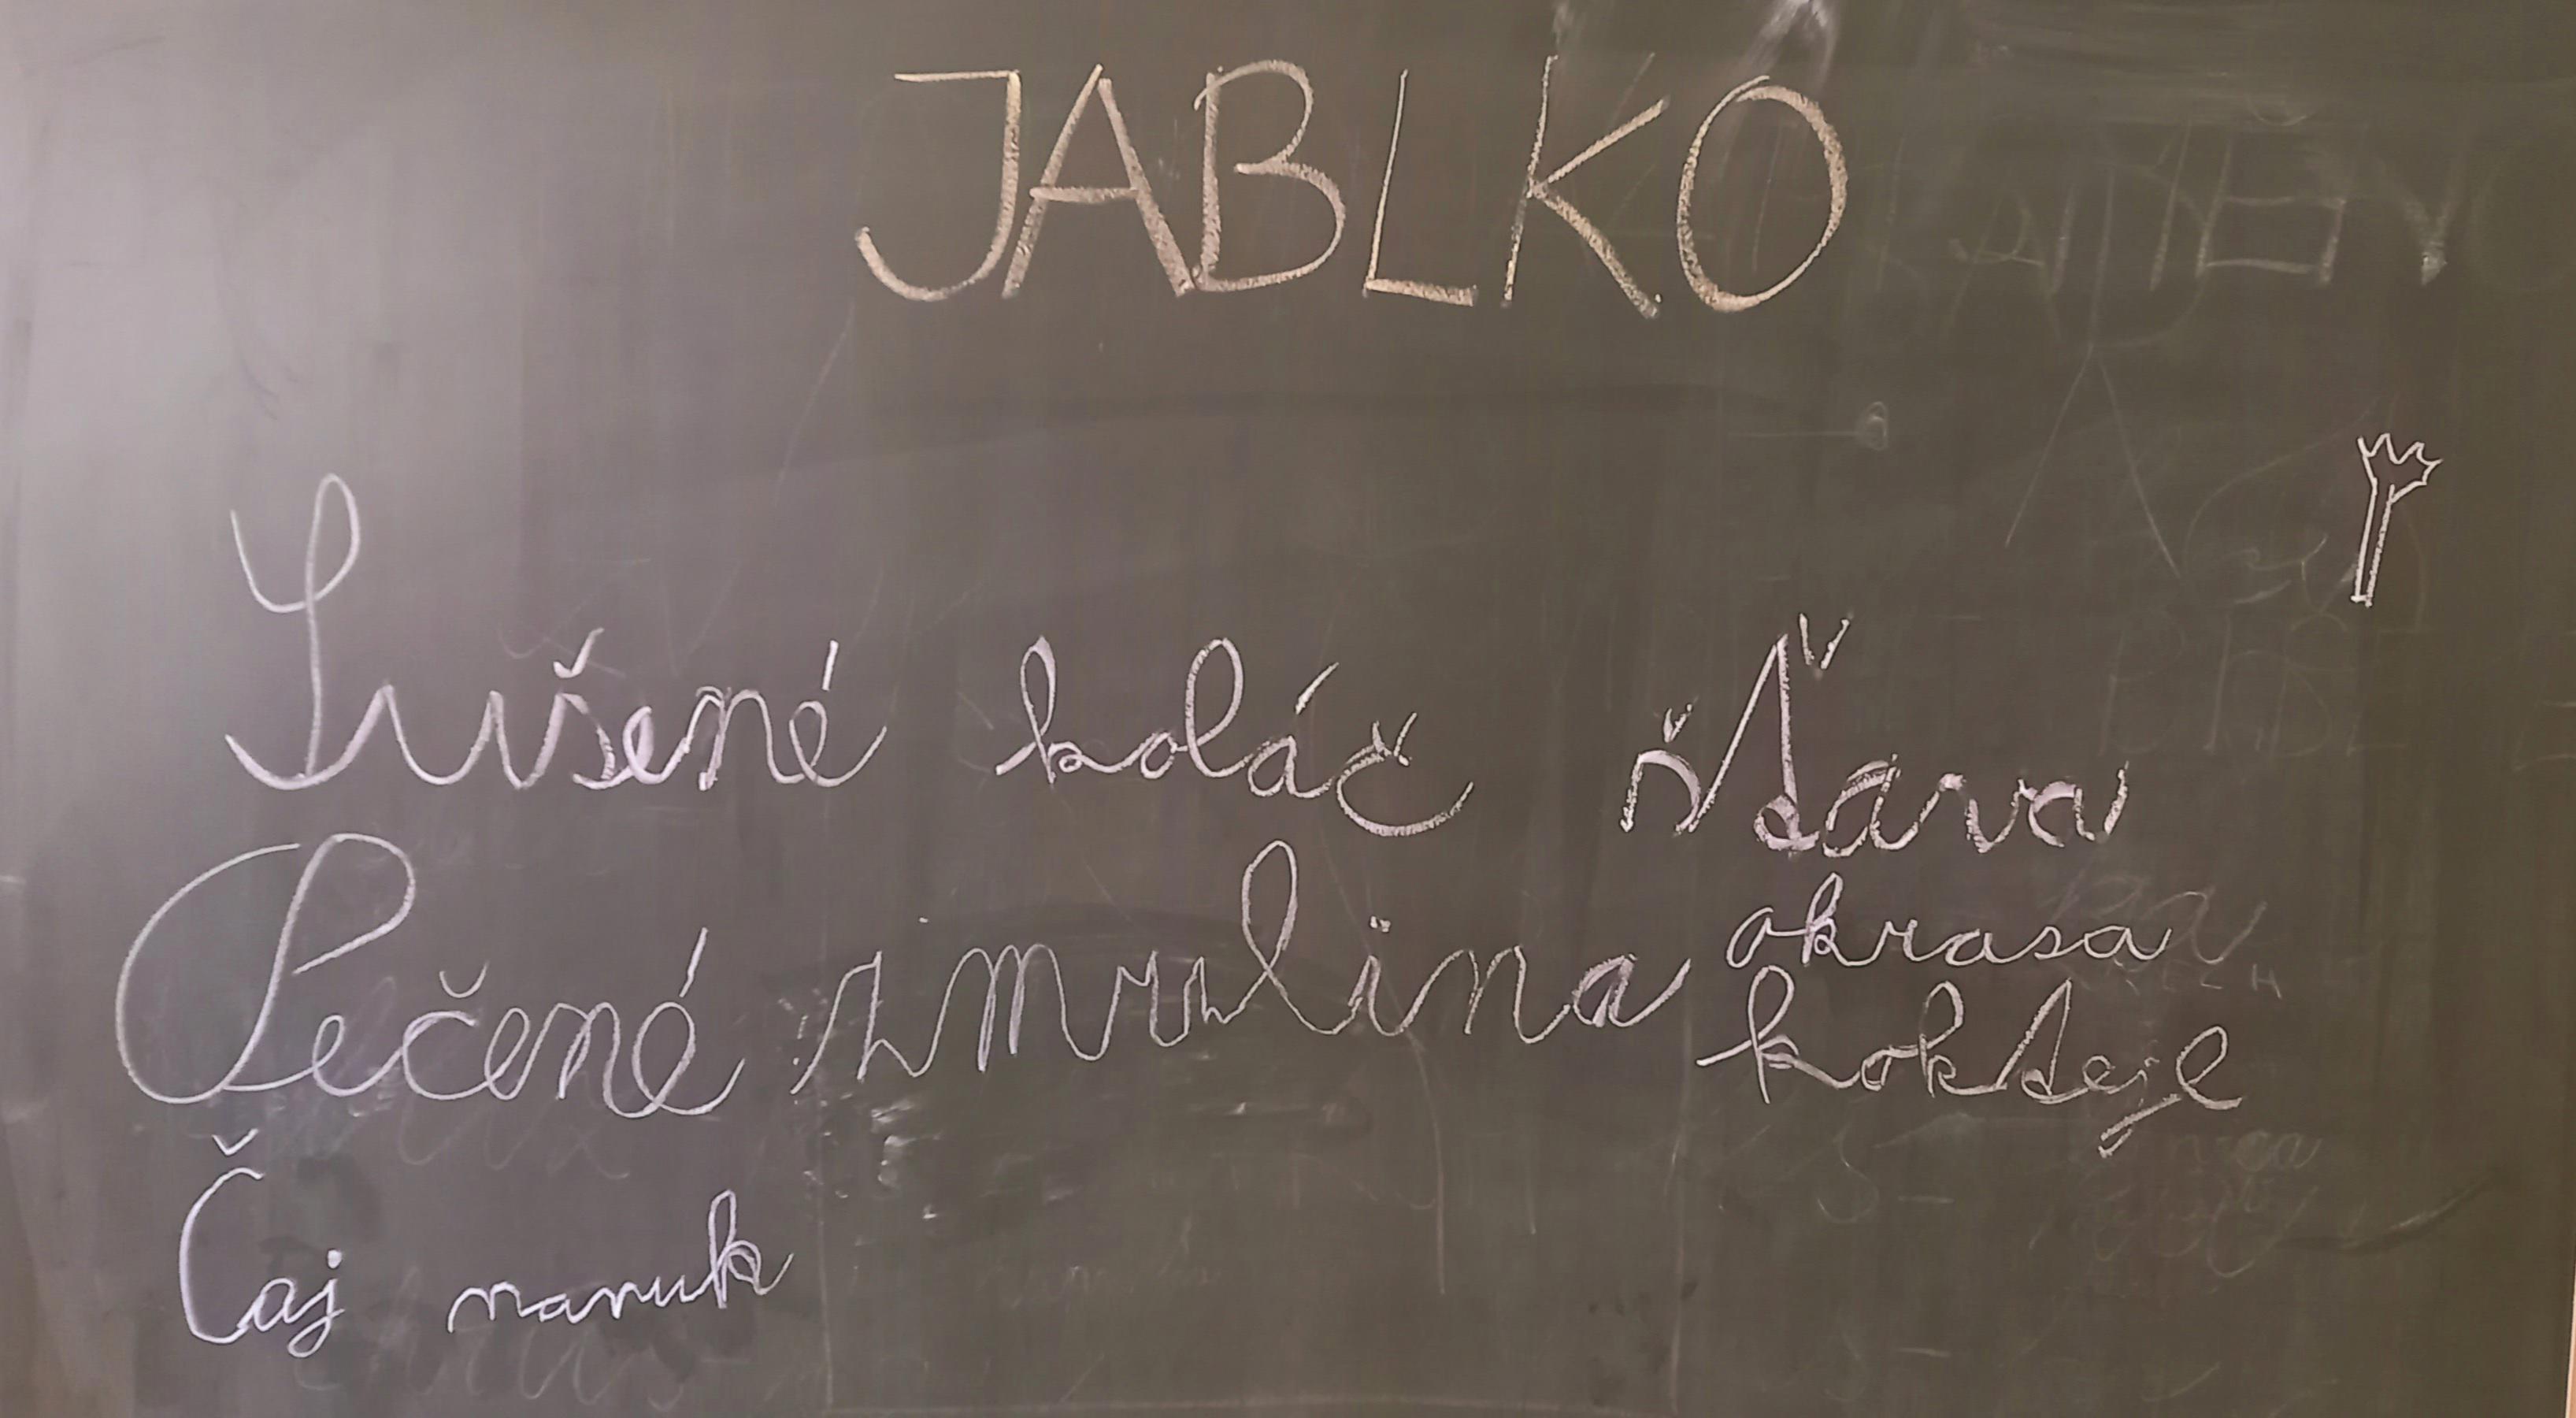 JABLKO
Sušené koláč šťava
Pečené zmrzlina okrasa
koktejl
Čaj nanuk